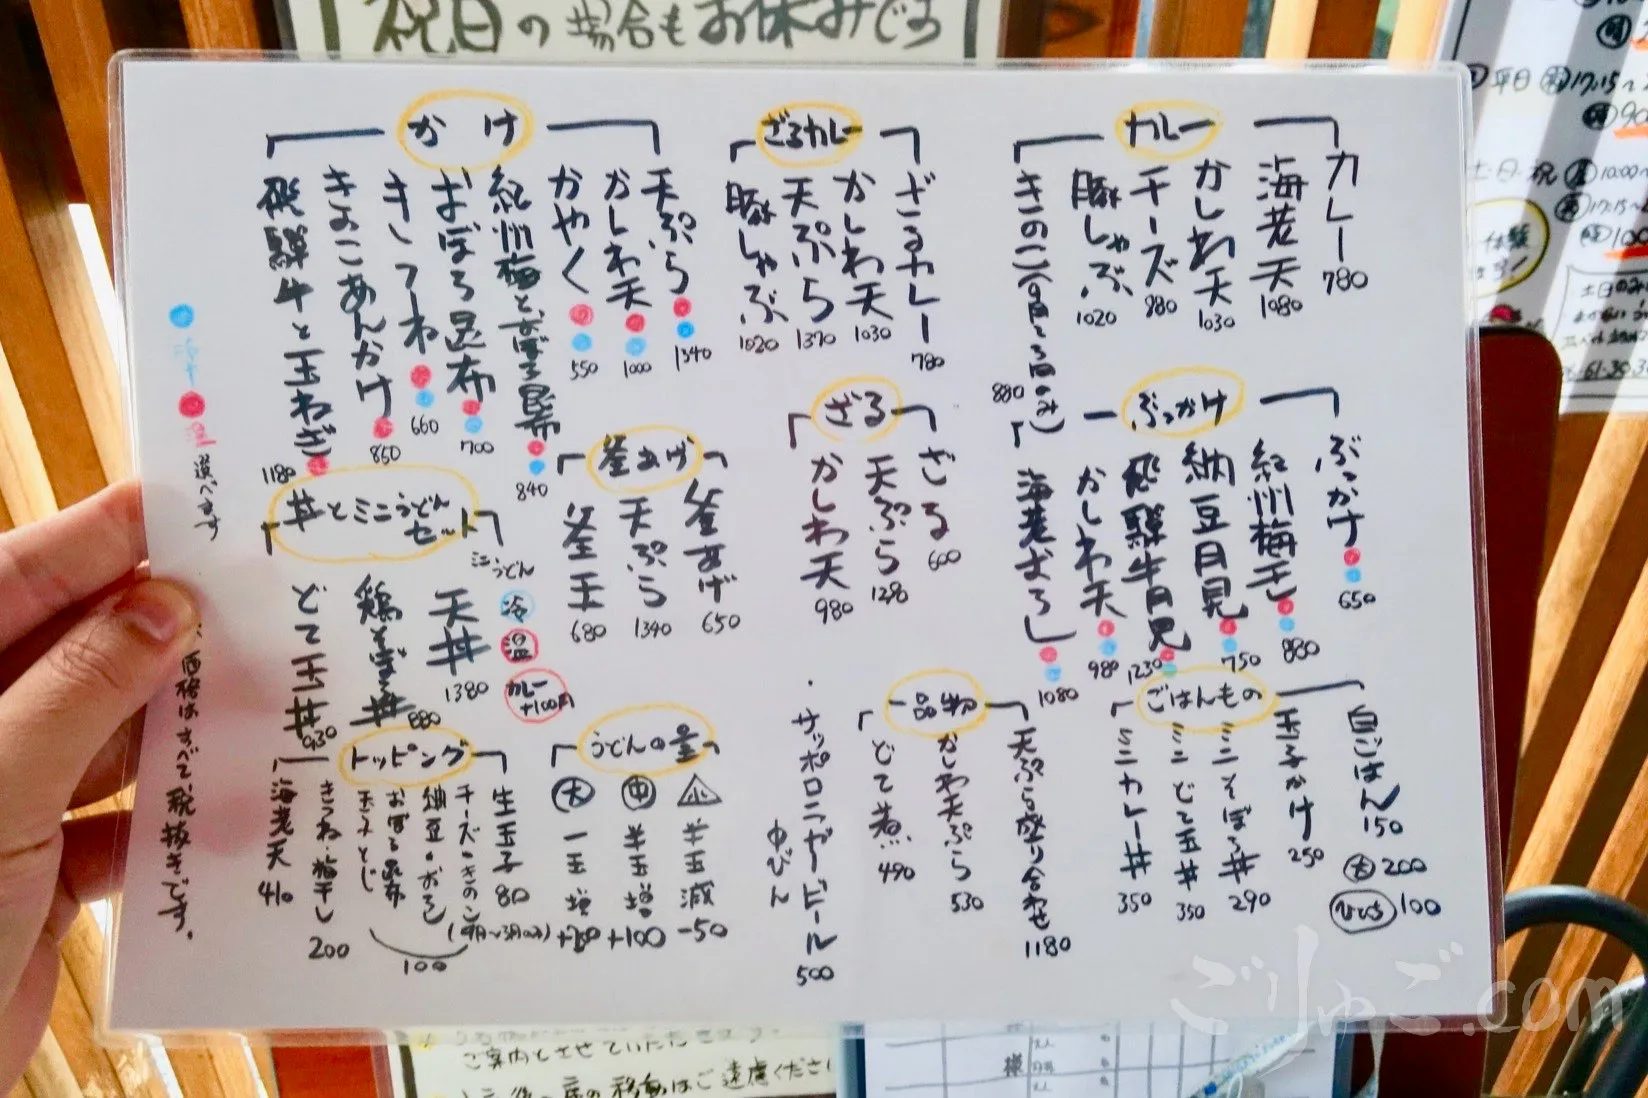 祝日の場合もお休みです
カレー
カレー 780
海老天 1080
かしわ天 1030
チーズ 880
豚しゃぶ 1020
きのこ 880
ざるカレー
ざるカレー 780
かしわ天 1030
天ぷら 1370
豚しゃぶ 1020
かけ
天ぷら 1340
かしわ天 1000
かやく 550
紀州梅とおぼろ昆布 840
おぼろ昆布 700
きつね 660
きのこあんかけ 850
飛騨牛と玉ねぎ 1180
ぶっかけ
ぶっかけ 650
紀州梅干 880
納豆月見 750
飛騨牛月見 1230
かしわ天 980
海老おろし 1080
ざる
ざる 600
天ぷら 1290
かしわ天 980
釜あげ
釜あげ 650
天ぷら 1340
釜玉 680
丼とミニうどんセット
ミニうどん
冷
温
カレー+100円
天丼 1380
鶏そぼろ丼 880
どて玉丼 930
ごはんもの
白ごはん 150
大 200
100
玉子かけ 250
ミニそぼろ丼 290
ミニどて玉丼 350
ミニカレー丼 350
一品物
天ぷら盛り合わせ 1180
かしわ天ぷら 530
どて煮 490
・サッポロラガービール 中びん 500
うどんの量
小 半玉減 -50
中 半玉増 +100
大 一玉増 +200
トッピング
生玉子 80
チーズ・きのこ(9月〜3月のみ)
納豆・おろし
おぼろ昆布
玉子とじ
100
きつね・梅干し 200
海老天 410
冷
温 選べます
価格はすべて税抜きです。
平日
17:15〜
土・日・祝
10:00〜
17:15〜
ご案内とさせていただきます。
移動はご遠慮ください
様
ごりゅご.com